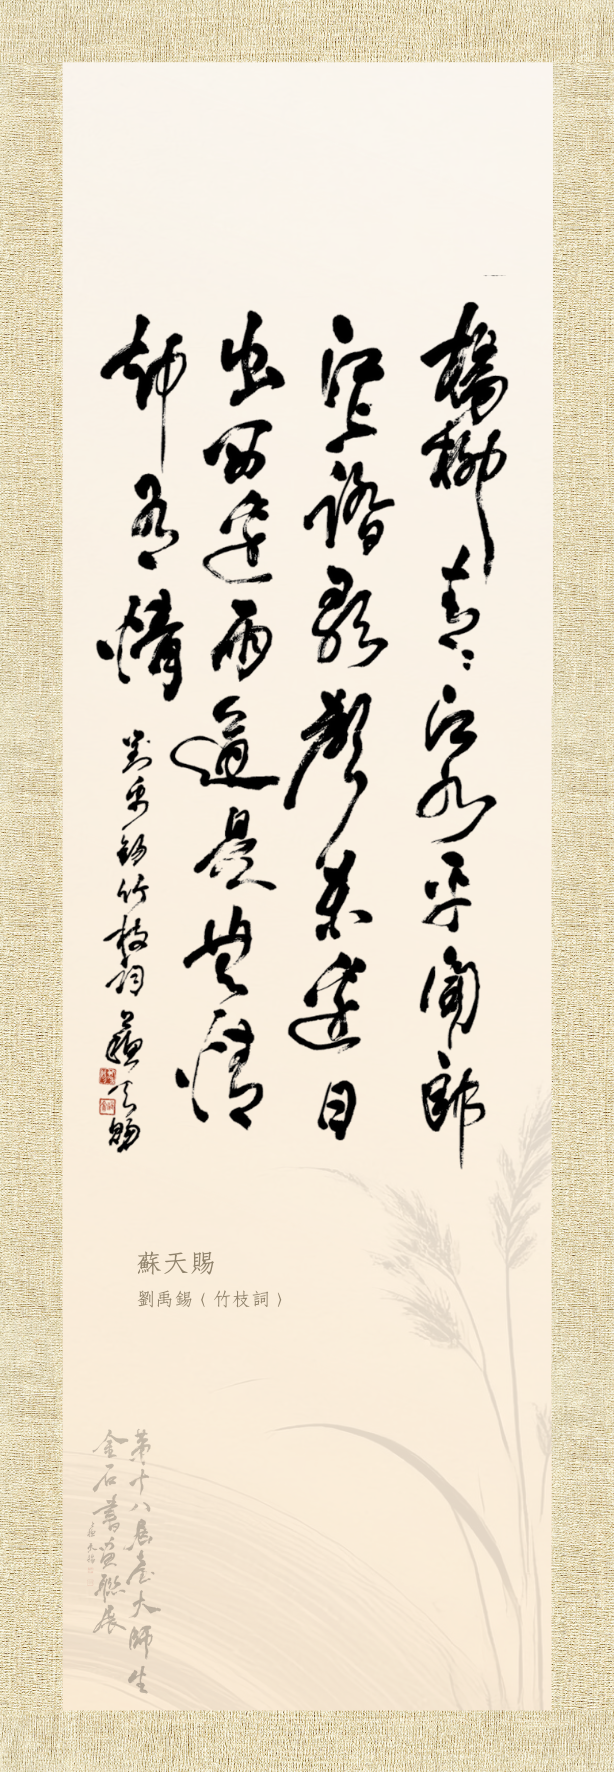 楊柳青々江水平聞郎
江上踏歌聲東邊日
出西邊雨道是無情
却有情 劉禹錫竹枝詞 蘇天賜
蘇天賜
劉禹錫（竹枝詞）
第十八屆臺大師生
金石書畫聯展
蘇天賜